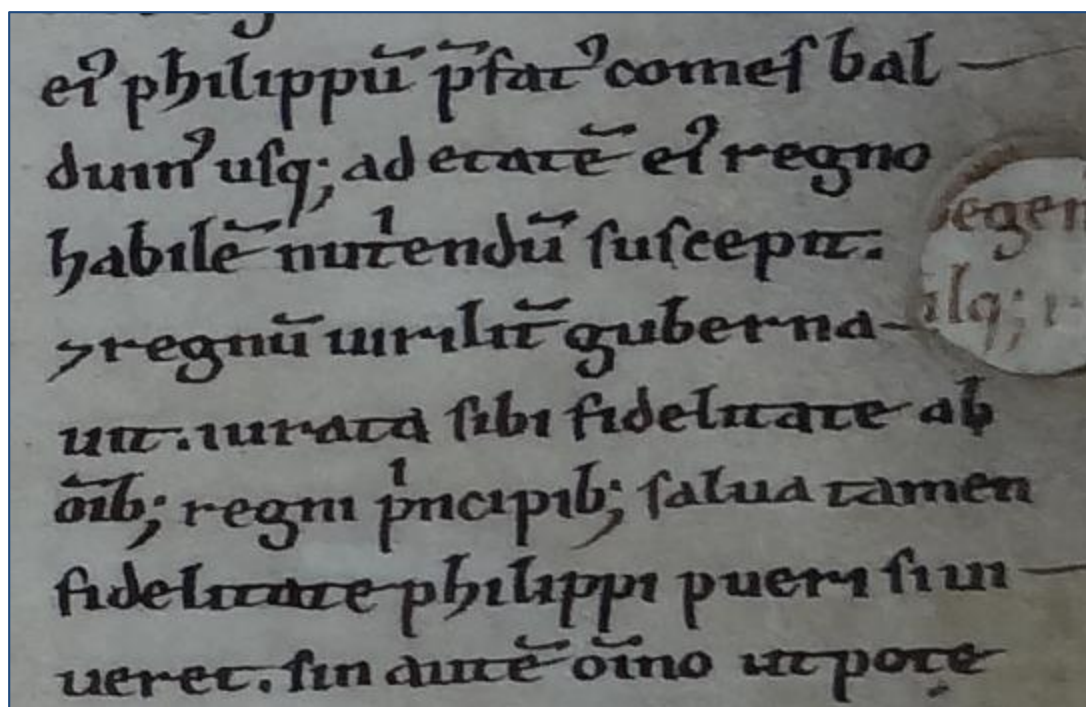 eiꝰ philippū p̄fatꝰ comeſ bal
duinꝰ uſq; ad etatē eiꝰ regno
habilē nutͥendū ſuſcepit.
⁊ regnū uirilit̄ guberna-
uit. iurata ſibi fidelitate ab
oīb; regni pͥncipib; ſalua tamen
fidelitate philippi pueri ſi ui
ueret. ſin autē oīno ut potę